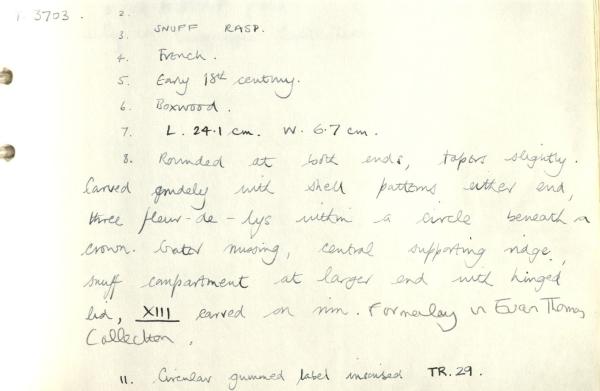 1. 3703. 2.
3. SNUFF RASP.
4. French.
5. Early 18th century.
6. Boxwood.
7. L. 24.1 cm. W. 6.7 cm.
8. Rounded at both ends, tapers slightly.
Carved crudely with shell patterns either end,
three fleur-de-lys within a circle beneath a
crown. Grater missing, central supporting ridge,
snuff compartment at larger end with hinged
lid, XIII carved on rim. Formerlay in Evan Thomas
Collection.
11. Circular gummed label inscribed TR.29.